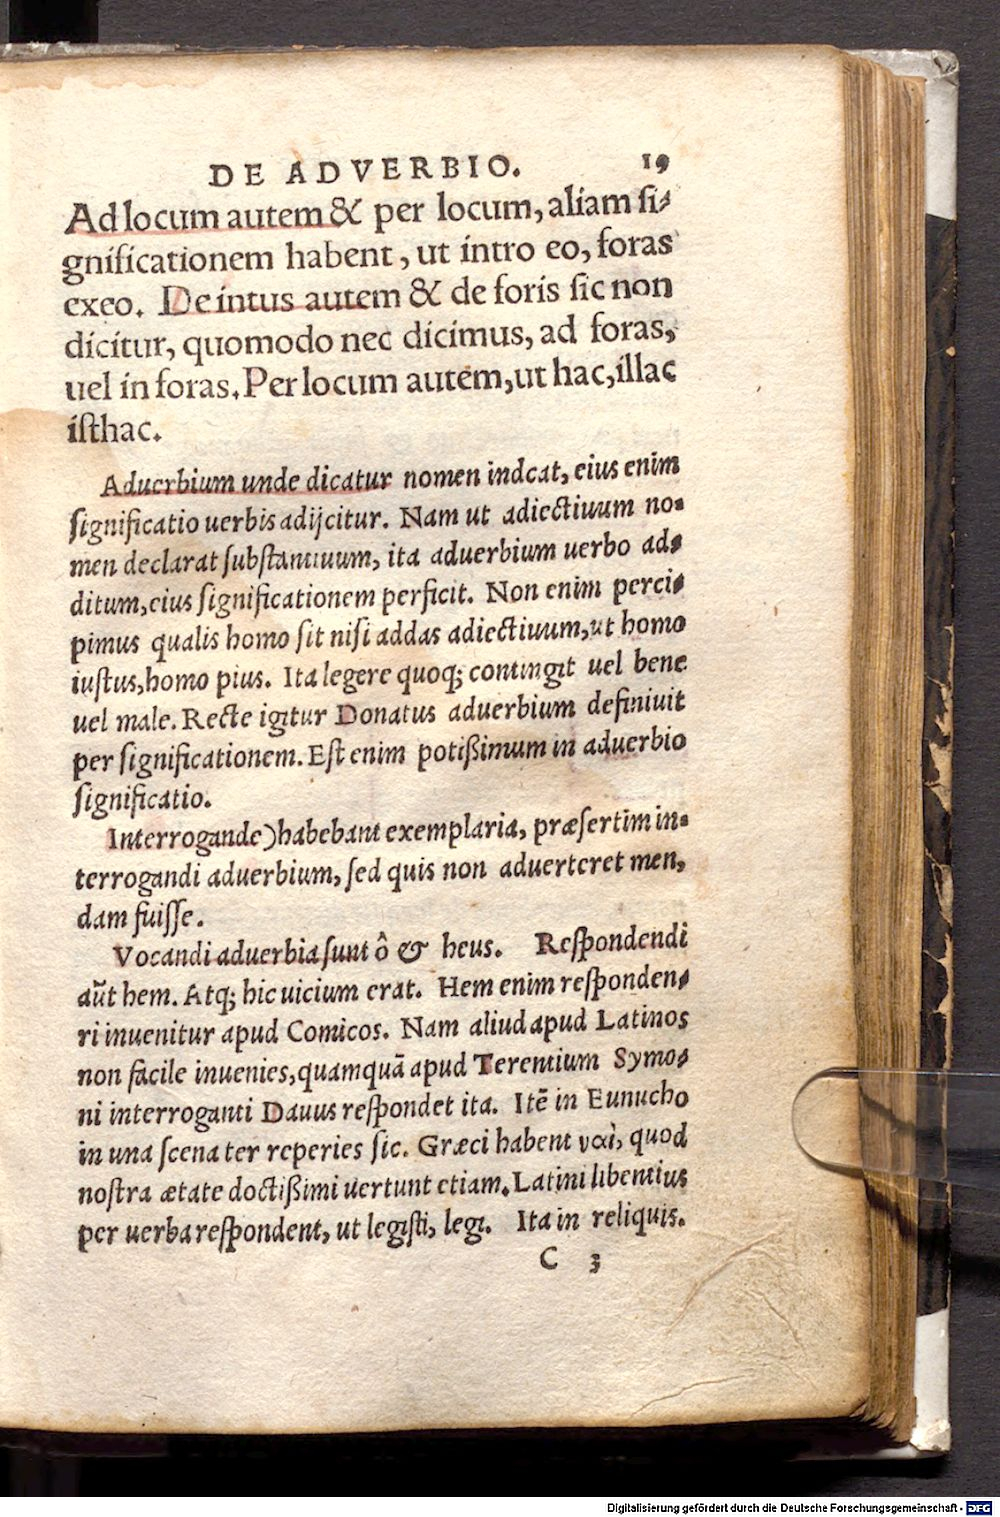 DE ADVERBIO. 19
Ad locum autem & per locum, aliam si⸗
gnificationem habent, ut intro eo, foras
exeo. De intus autem & de foris sic non
dicitur, quomodo nec dicimus, ad foras,
uel in foras. Per locum autem, ut hac, illac
isthac.
Aduerbium unde dicatur nomen indcat, eius enim
significatio uerbis adijcitur. Nam ut adiectiuum no⸗
men declarat substantiuum, ita aduerbium uerbo ad⸗
ditum, eius significationem perficit. Non enim perci⸗
pimus qualis homo sit nisi addas adiectiuum, ut homo
iustus, homo pius. Ita legere quoq; contingit uel bene
uel male. Recte igitur Donatus aduerbium definiuit
per significationem. Est enim potißimum in aduerbio
significatio.
Interrogande) habebant exemplaria, præsertim in⸗
terrogandi aduerbium, sed quis non aduerteret men,
dam fuisse.
Vocandi aduerbia sunt ô & heus. Respondendi
aūt hem. Atq; hic uicium erat. Hem enim responden⸗
ri inuenitur apud Comicos. Nam aliud apud Latinos
non facile inuenies, quamquā apud Terentium Symo⸗
ni interroganti Dauus respondet ita. Itē in Eunucho
in una scena ter reperies sic. Græci habent ναὶ, quod
nostra ætate doctißimi uertunt etiam. Latini libentius
per uerba respondent, ut legisti, legi. Ita in reliquis.
C 3
Digitalisierung gefördert durch die Deutsche Forschungsgemeinschaft - DFG